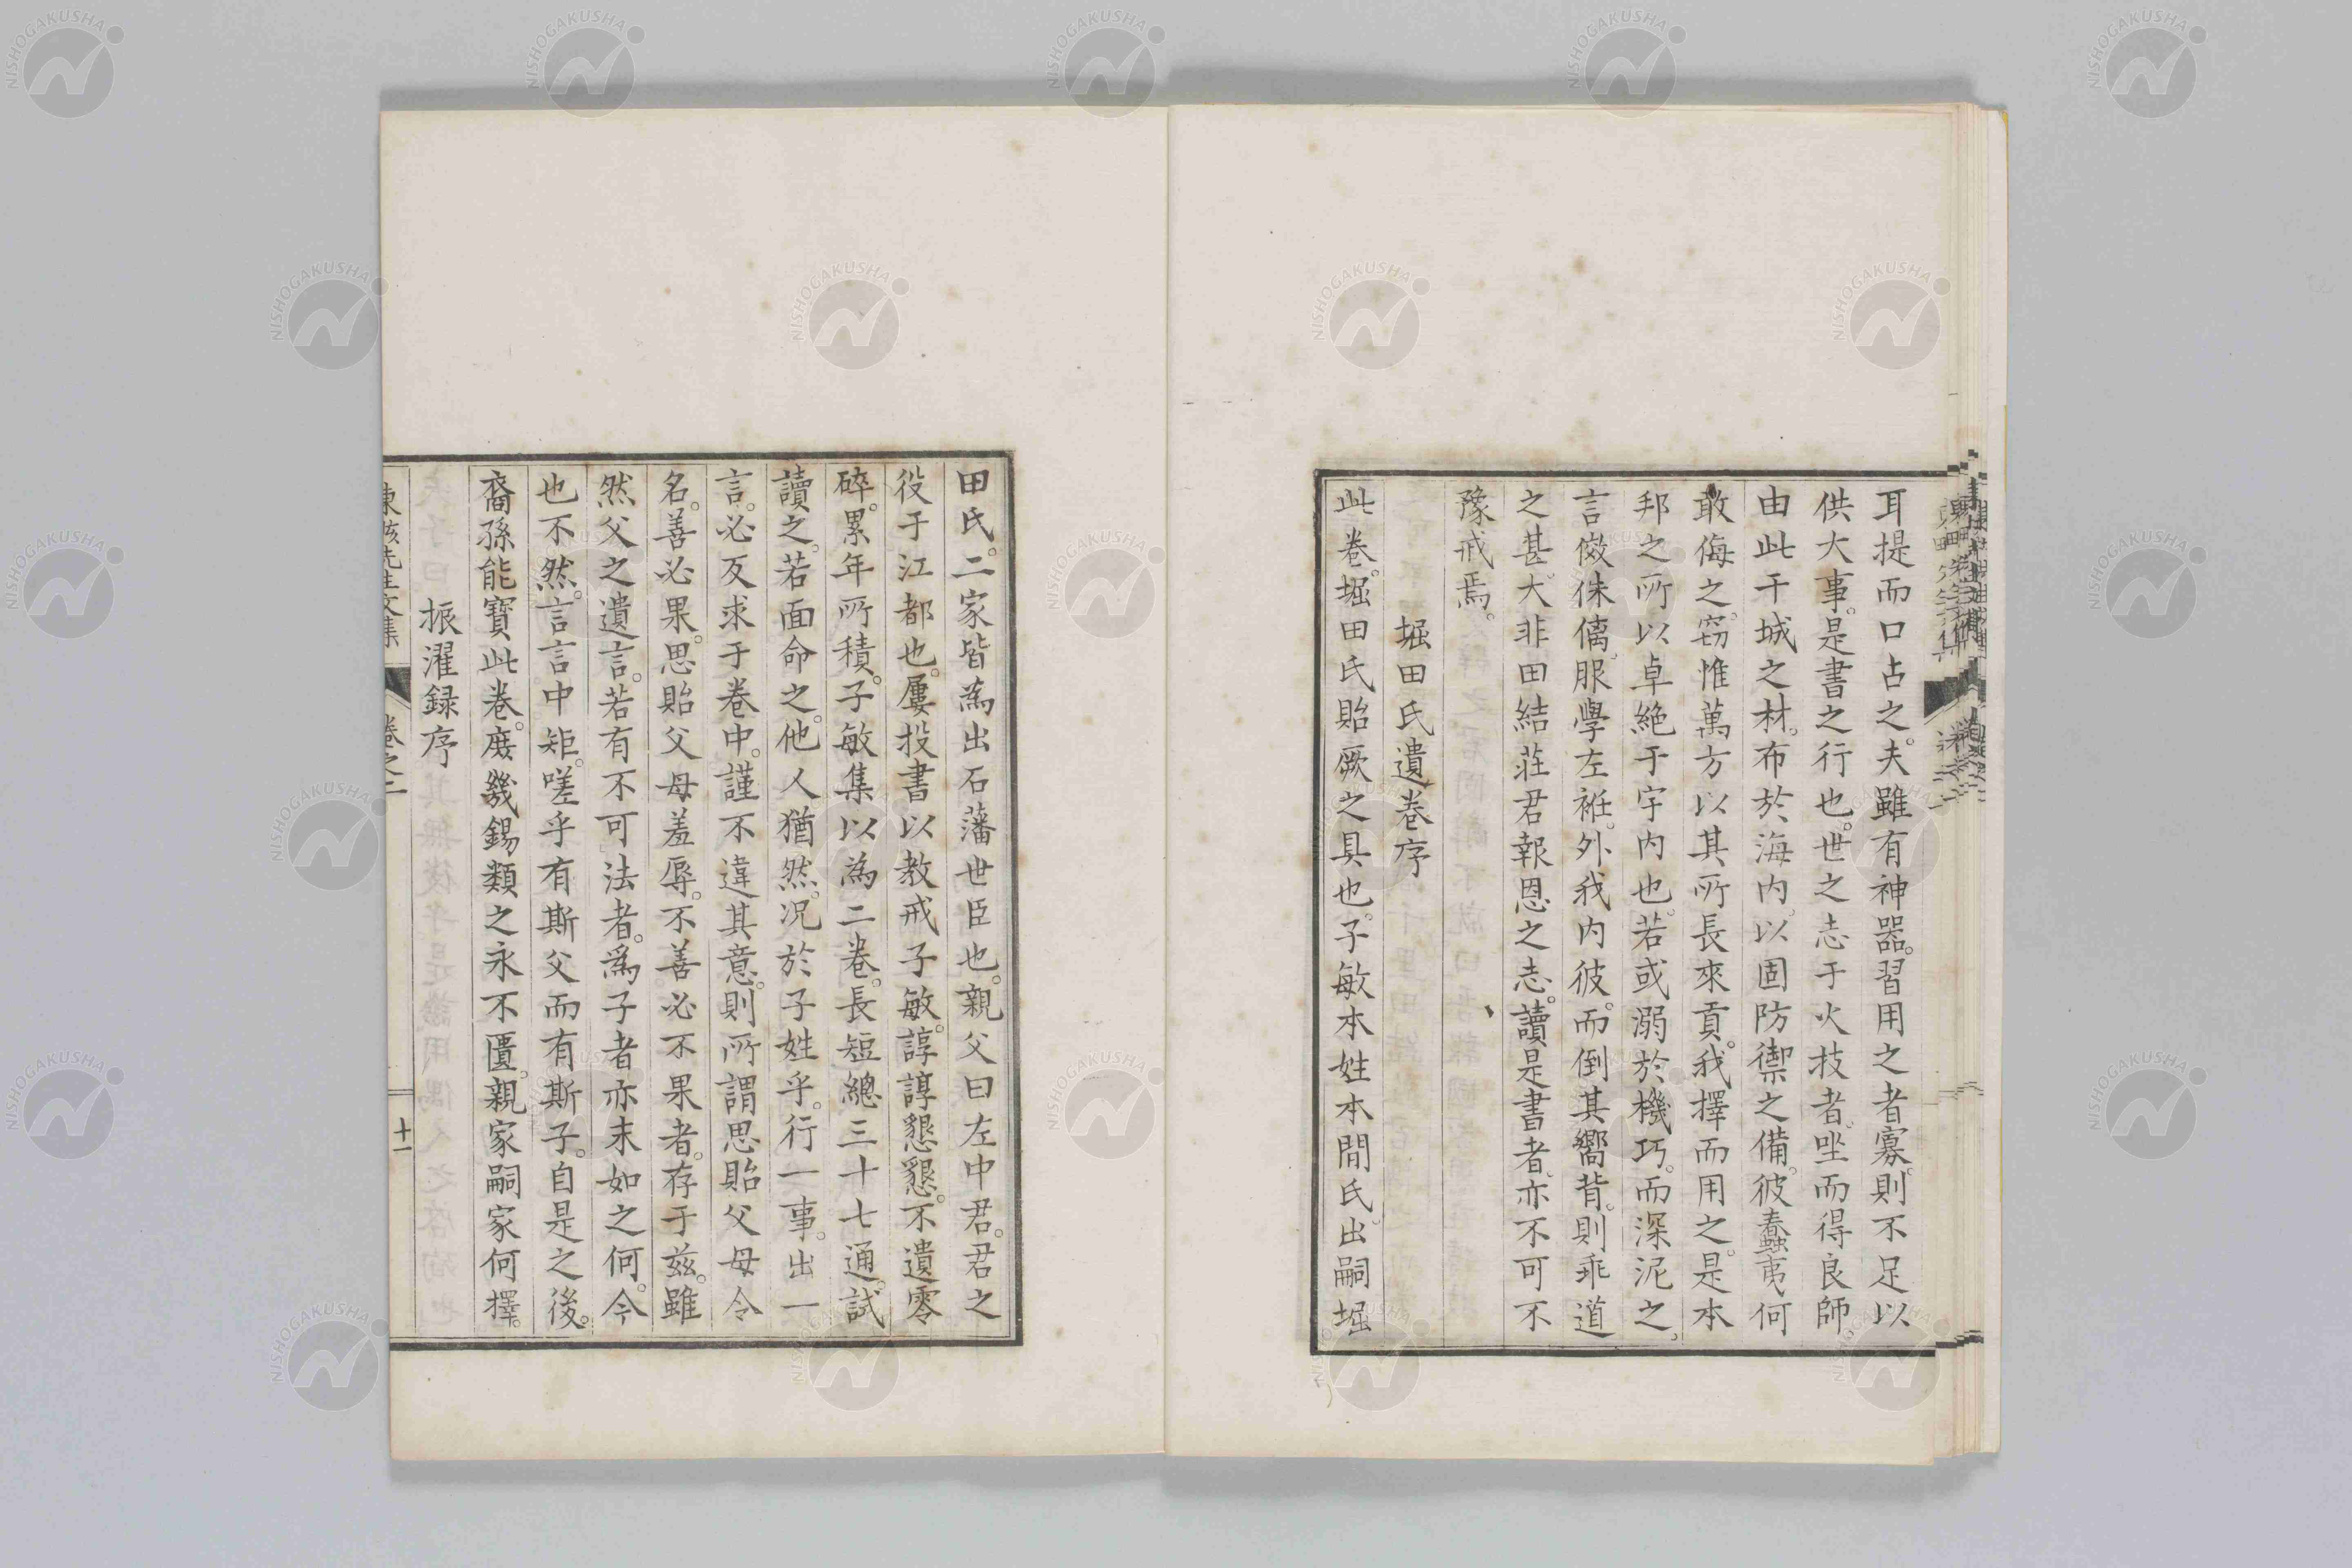 耳提而口占之。夫雖有神器。習用之者寡。則不足以
供大事。是書之行也。世之志于火技者。坐而得良師
由此干城之材。布於海内。以固防禦之備。彼蠢夷何
敢侮之。窃惟萬方以其所長來貢。我擇而用之。是本
邦之所以卓絶于宇内也。若或溺於機巧。而深泥之。
言傚侏僞。服學左袵。外我内彼。而倒其嚮背。則乖道
之甚。大非田結荘君報恩之志。讀是書者。亦不可不
豫戒焉。
堀田氏遺巻序
此巻。堀田氏貽厥之具也。子敏本姓本間氏。出嗣堀
田氏。二家皆為出石藩世臣也。親父曰左中君。君之
役于江都也。屢投書以教戒子敏。諄諄懇懇。不遺零
碎。累年所積。子敏集以為二巻。長短總三十七通。試
讀之。若面命之。他人猶然。况於子姓乎。行一事。出一
言。必反求于巻中。謹不違其意。則所謂思貽父母令
名。善必果。思貽父母羞辱。不善必不果者。存于兹。雖
然父之遺言。若有不可法者。為子者亦末如之何。今
也不然。言言中矩。嗟乎有斯父而有斯子。自是之後。
裔孫能寶此巻。庻幾錫類之永不匱。親家嗣家何擇。
振濯録序
先生文集 巻之二 十一
NISHOGAKUSHA